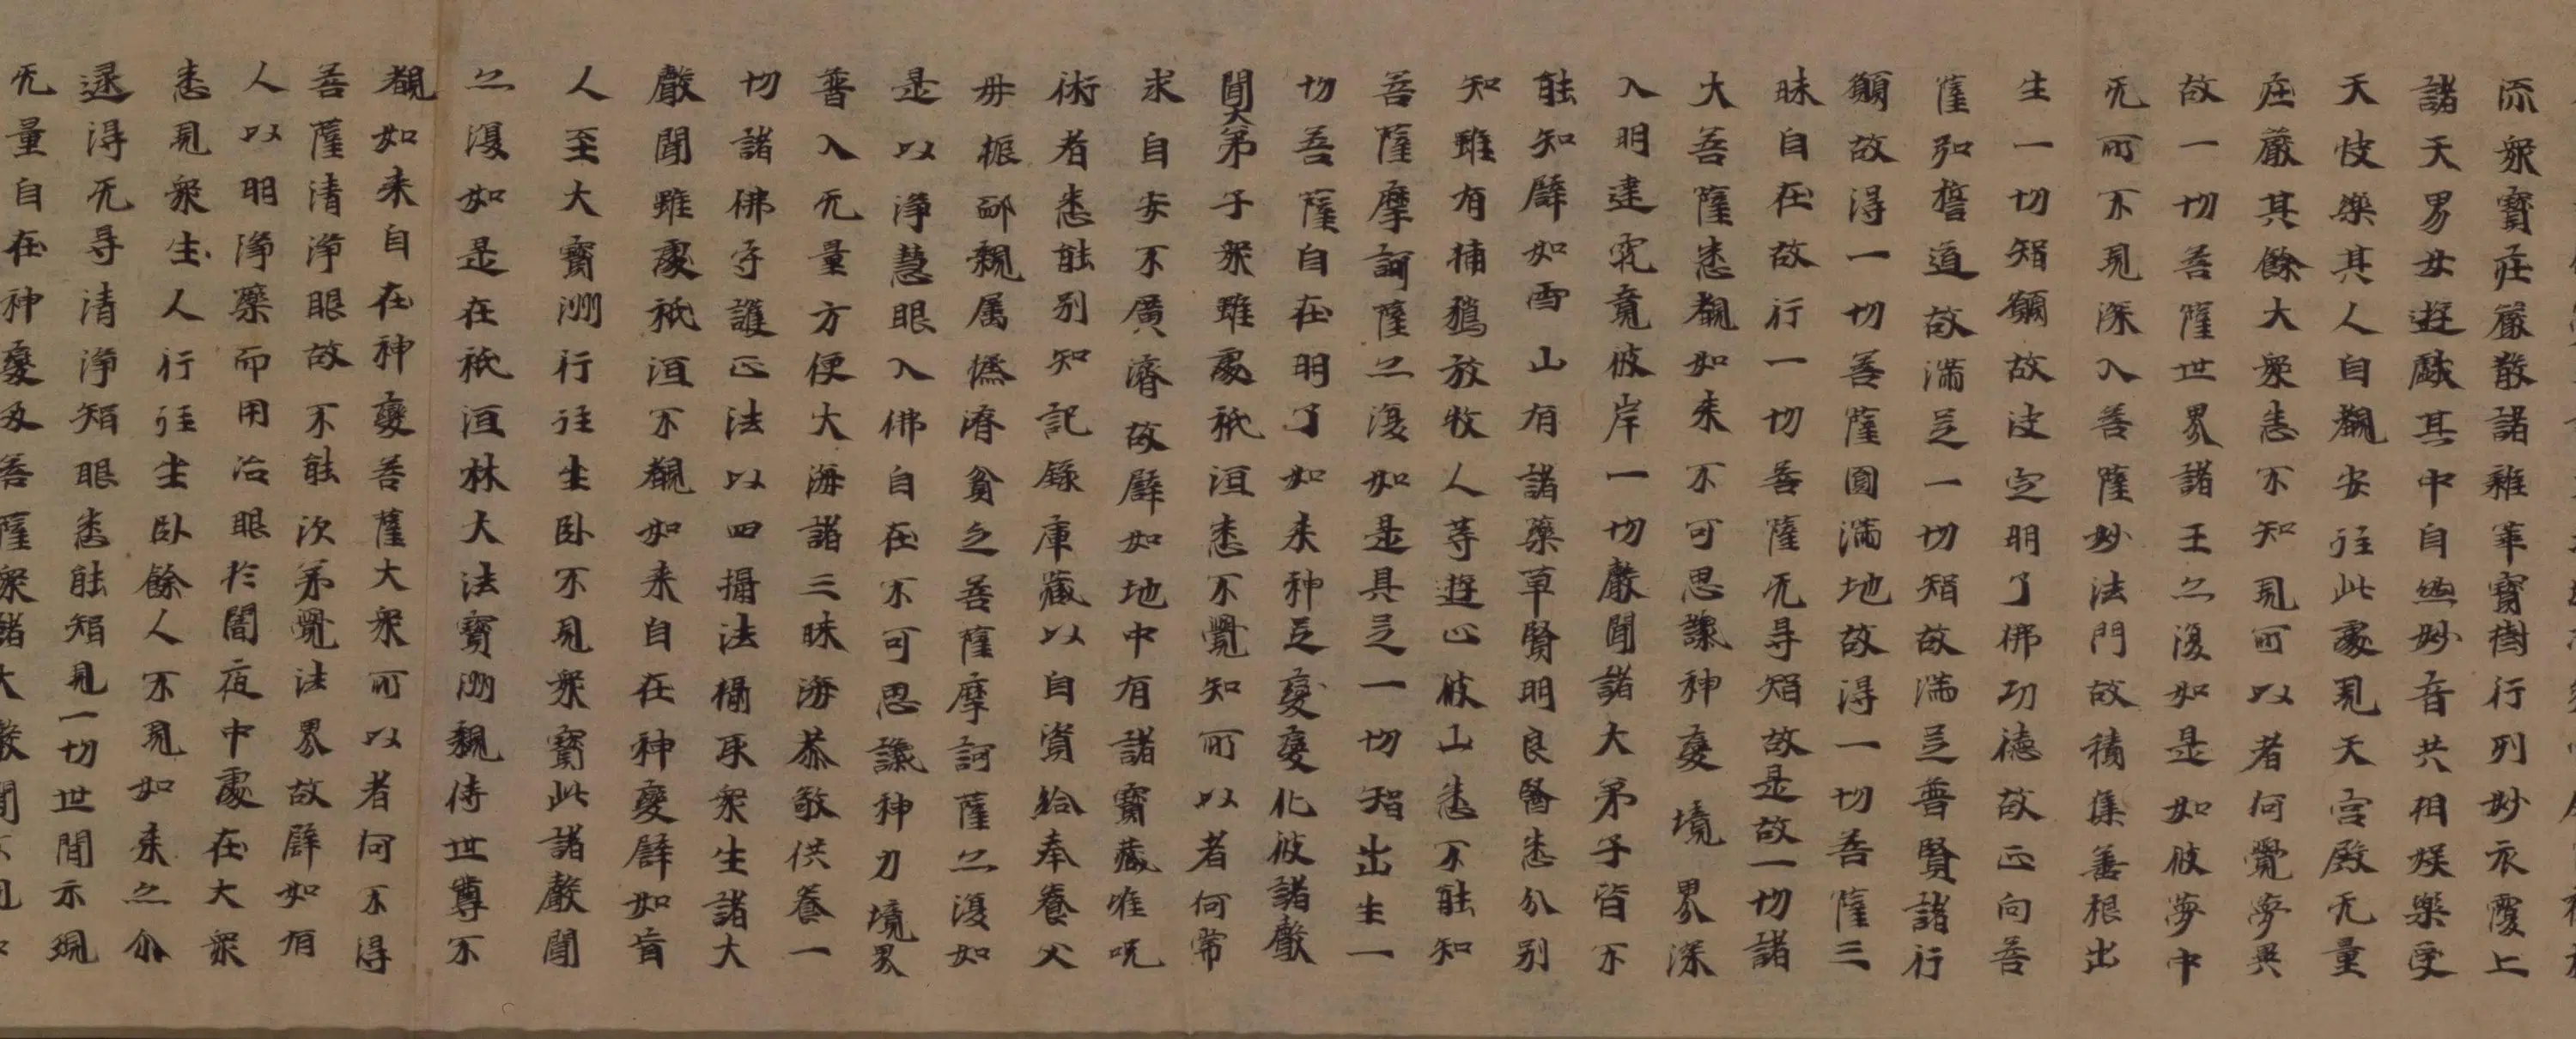 流衆寶莊嚴散諸雜華寶樹行列妙衣覆上
諸天男女遊戲其中自然妙音共相娛樂受
天快樂其人自覩安住此處見天宮殿无量
莊嚴其餘大衆悉不知見所以者何覺夢異
故一切菩薩世界諸王亦復如是如彼夢中
无所不見深入菩薩妙法門故積集善根出
生一切智願故決定明了佛功德故正向菩
薩弘誓道故滿足一切智故滿足普賢諸行
願故得一切菩薩圓滿地故得一切菩薩三
昧自在故行一切菩薩无㝵智故是故一切諸
大菩薩悉覩如来不可思議神變境界深
入明達究竟彼岸一切聲聞諸大弟子皆不
能知譬如雪山有諸藥草賢明良醫悉分別
知雖有捕獵放牧人等遊止彼山悉不能知
菩薩摩訶薩亦復如是具足一切智出生一
切菩薩自在明了如来神足變變化彼諸聲
聞大弟子衆雖處祇洹悉不覺知所以者何常
求自安不廣濟故譬如地中有諸寶藏唯呪
術者悉能別知記錄庫藏以自資給奉養父
母振卹親属㧑濟貧乏菩薩摩訶薩亦復如
是以淨慧眼入佛自在不可思議神力境界
普入无量方便大海諸三昧海恭敬供養一
切諸佛守護正法以四攝法攝取衆生諸大
聲聞雖處祇洹不覩如来自在神變譬如盲
人至大寶洲行住坐卧不見衆寶此諸聲聞
亦復如是在祇洹林大法寶洲親侍世尊不
覩如来自在神變菩薩大衆所以者何不得
菩薩清淨眼故不能次第覺法界故譬如有
人以明淨藥而用治眼於闇夜中處在大衆
悉見衆生人行住坐卧餘人不見如来亦尒
逮得无㝵清淨智眼悉能知見一切世間示現
无量自在神變及菩薩衆諸大聲聞